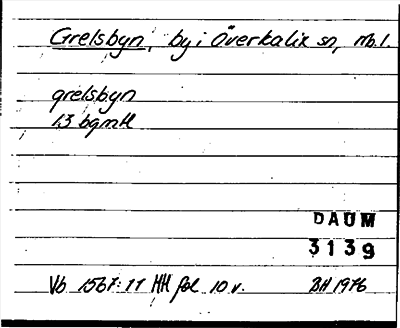 Grelsbyn, by i Överkalix sn, Nb.l.
grelsbyn
13 bgmH
DAUM
3139
Vb 1567:11 HH fol 10 v. BH 1976